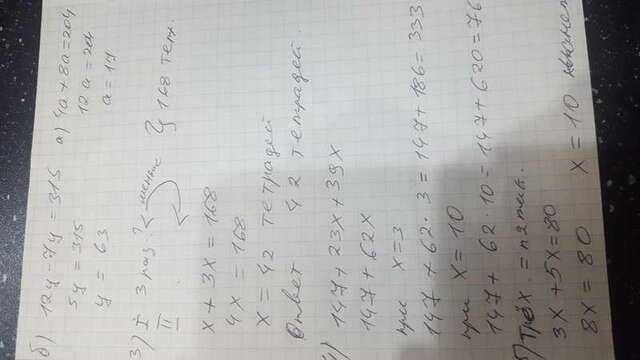 б) 12y - 7y = 315 а) 4a + 8a = 204
5y = 315 12a = 204
y = 63 a = 17
3) I 3 раз. < меньше } 168 тет.
II
x + 3x = 168
4x = 168
x = 42 тетрадей
Ответ 42 тетрадей.
147 + 23x + 39x
147 + 62x
при x = 3
147 + 62 · 3 = 147 + 186 = 333
при x = 10
147 + 62 · 10 = 147 + 620 = 76
Трёх. = пятик.
3x + 5x = 80
8x = 80 x = 10